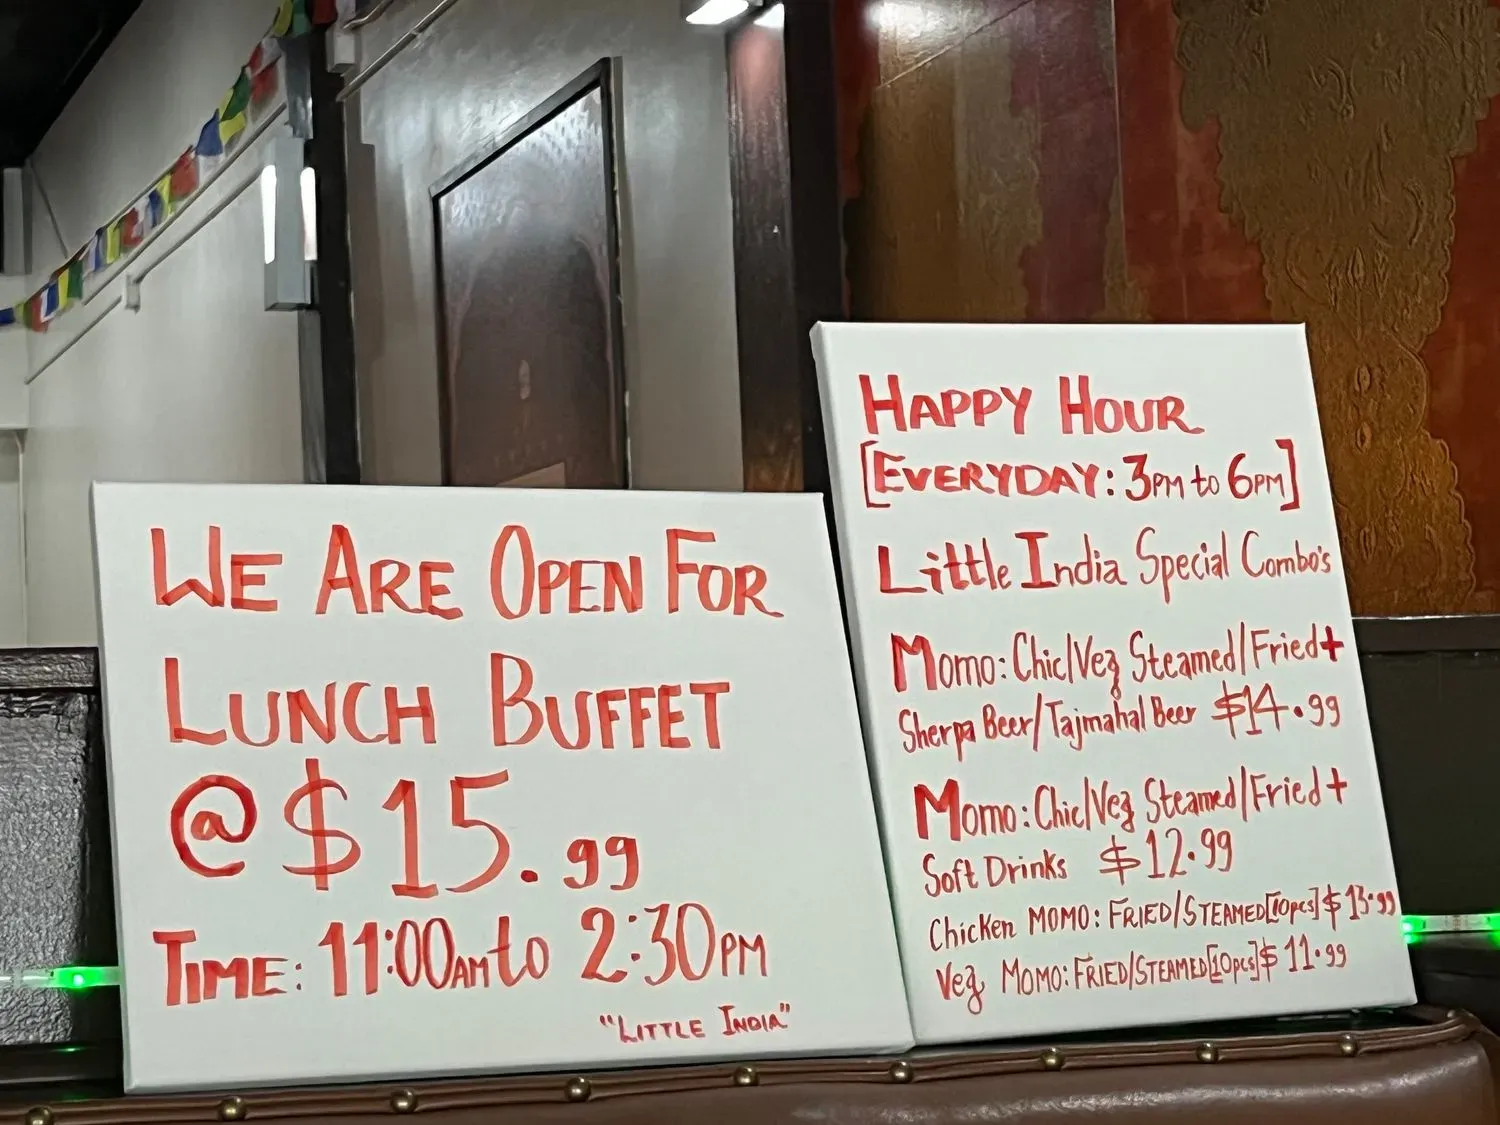 We Are Open For
Lunch Buffet
@ $15.99
Time: 11:00AM to 2:30PM
"Little India"
Happy Hour
[Everyday: 3PM to 6PM]
Little India Special Combo's
Momo: Chic/Veg Steamed/Fried+
Sherpa Beer/Tajmahal Beer $14.99
Momo: Chic/Veg Steamed/Fried+
Soft Drinks $12.99
Chicken MOMO: FRIED/STEAMED[10pcs] $13.99
Veg MOMO: FRIED/STEAMED[10pcs] $11.99